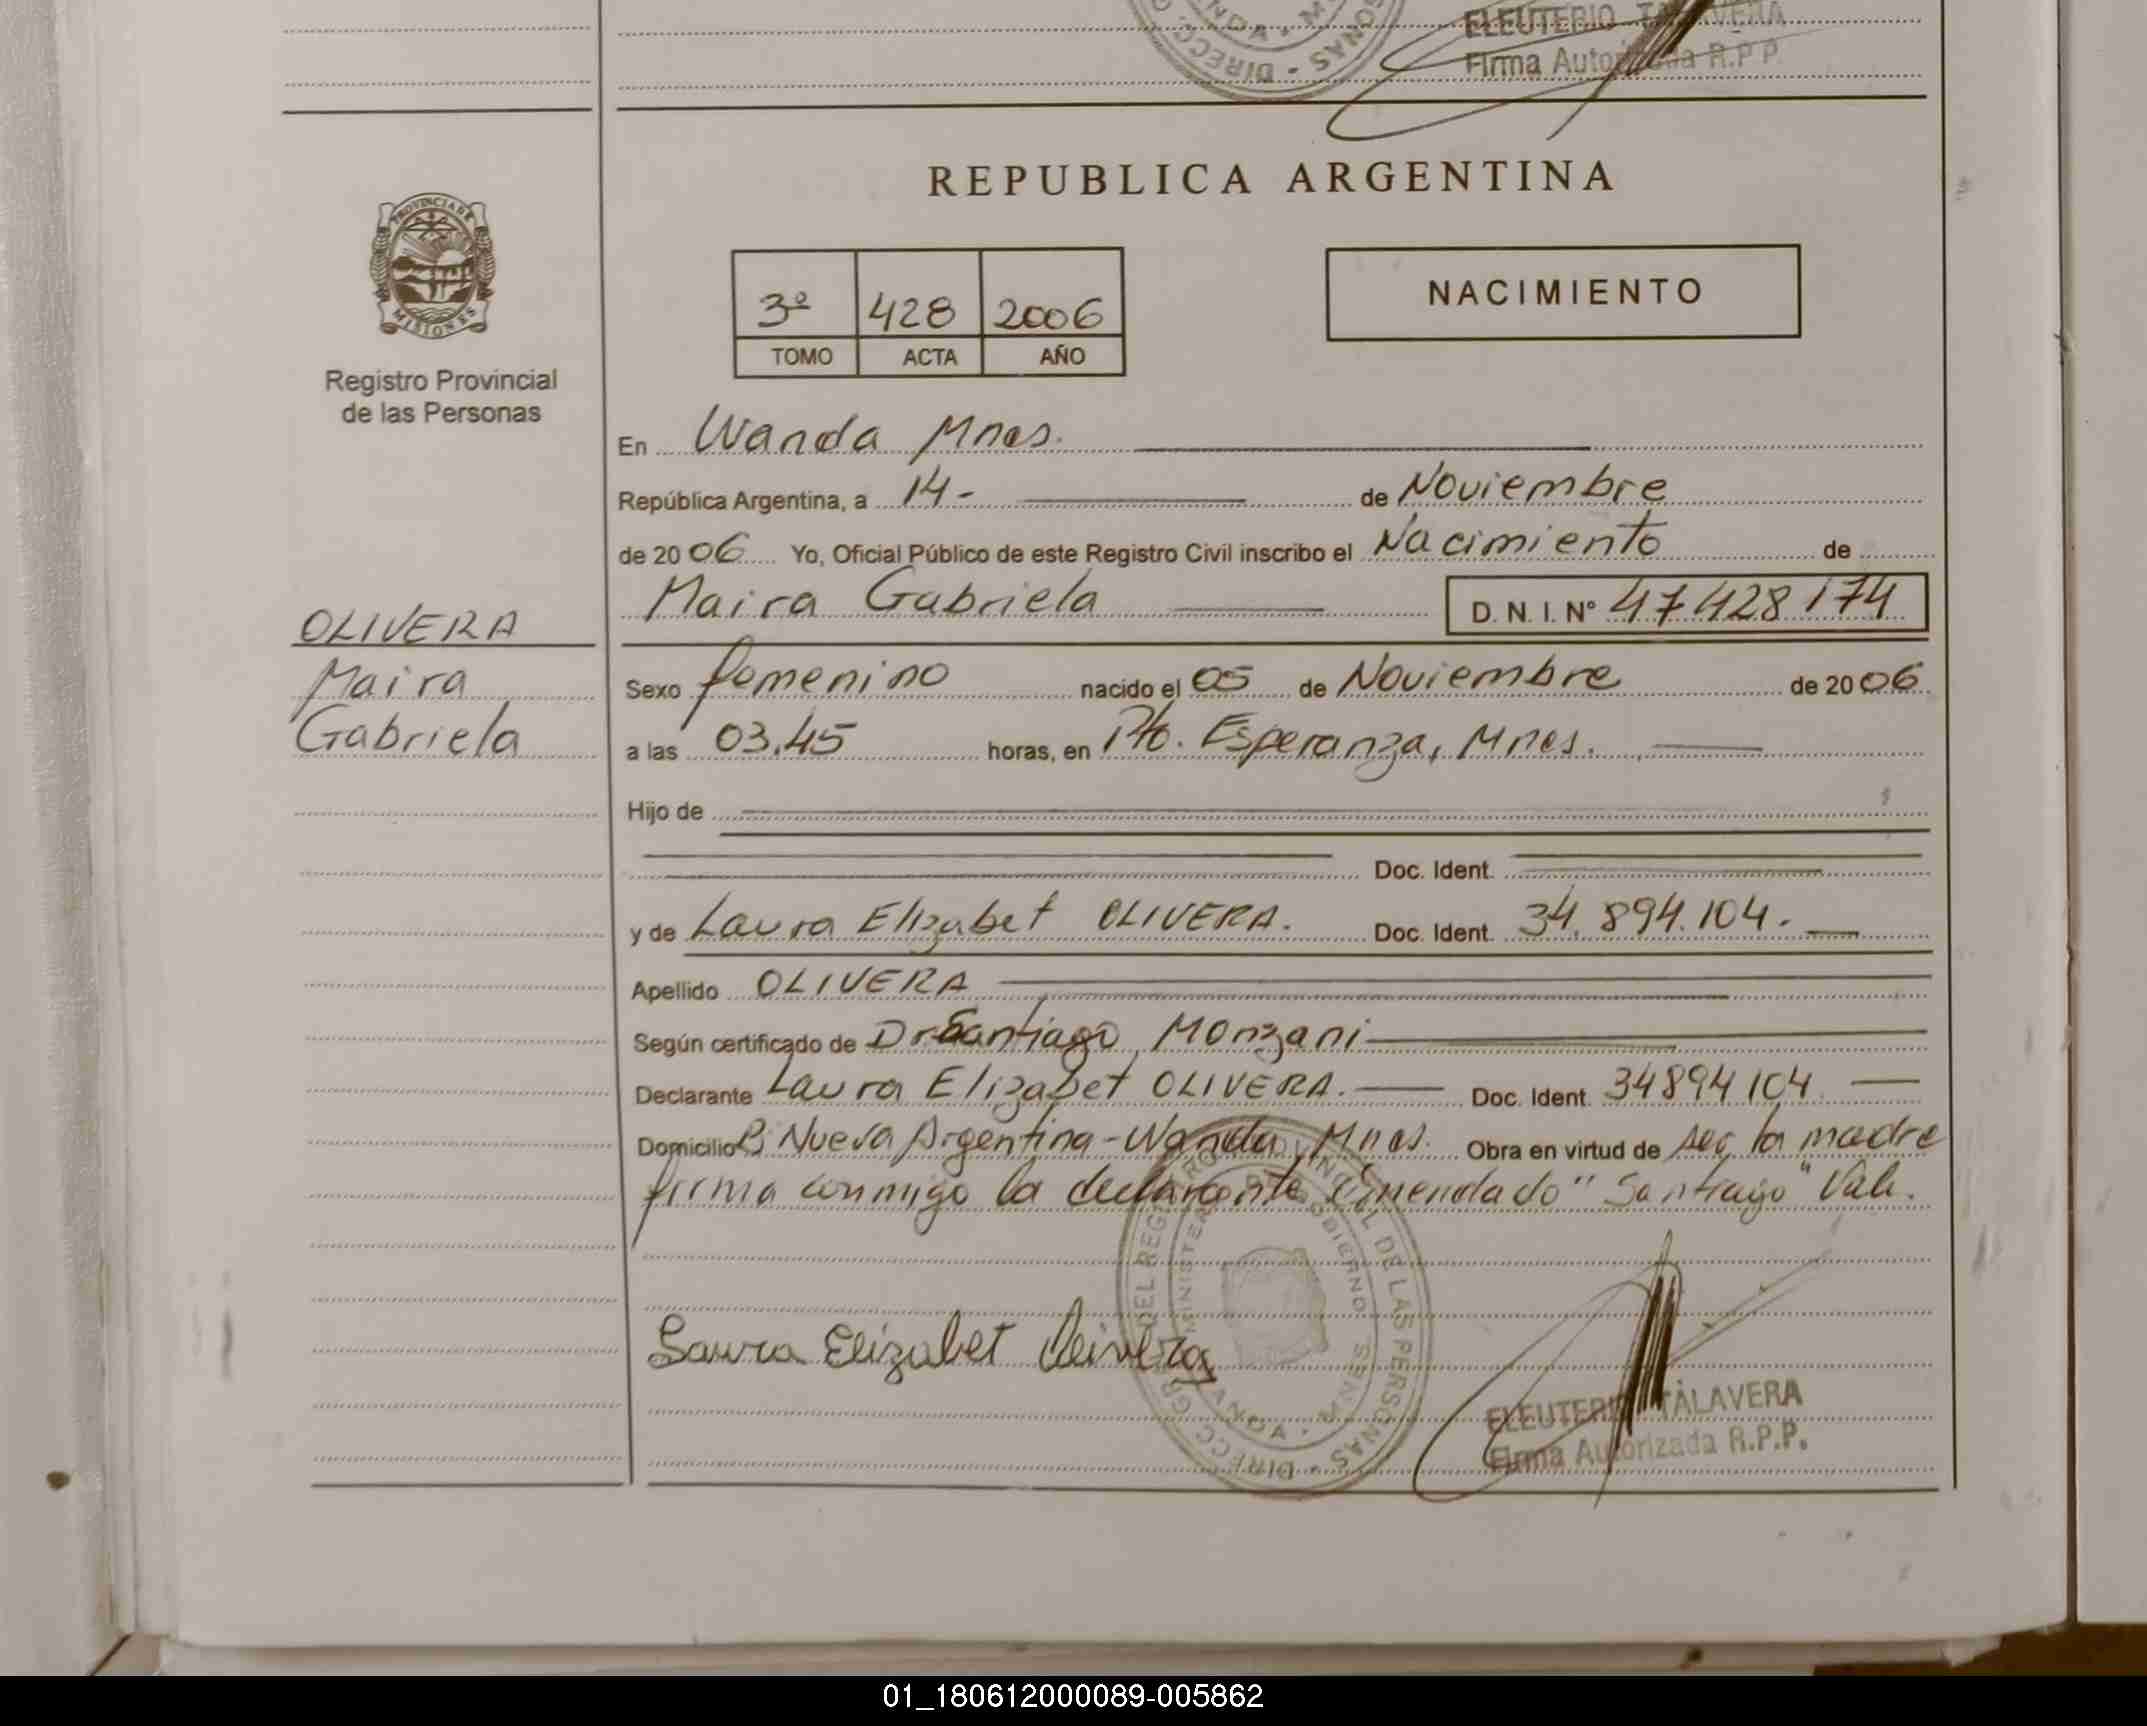 ELEUTERIO TALAVERA
Firma Autorizada R.P.P.
REPUBLICA ARGENTINA
PROVINCIA DE
MISIONES
Registro Provincial
de las Personas
3º 428 2006
TOMO ACTA AÑO
NACIMIENTO
En Wanda Mnes.
República Argentina, a 14- de Noviembre
de 2006 Yo, Oficial Público de este Registro Civil inscribo el Nacimiento de
Maira Gabriela D. N. I. Nº 47428174
OLIVERA
Maira
Gabriela
Sexo femenino nacido el 05 de Noviembre de 2006
a las 03.45 horas, en Pto. Esperanza, Mnes.
Hijo de
Doc. Ident.
y de Laura Elizabet OLIVERA. Doc. Ident. 34.894.104.
Apellido OLIVERA
Según certificado de Dr. Santiago Monzani
Declarante Laura Elizabet OLIVERA. Doc. Ident. 34894104
Domicilio Bº Nueva Argentina - Wanda, Mnes. Obra en virtud de ser la madre
firma conmigo la declarante, Enmendado "Santiago" Vale.
Laura Elizabet Oliveira
DIRECC. GRAL. DEL REGISTRO PROVINCIAL DE LAS PERSONAS
MINISTERIO DE GOBIERNO
WANDA - MNES
ELEUTERIO TALAVERA
Firma Autorizada R.P.P.
01_180612000089-005862